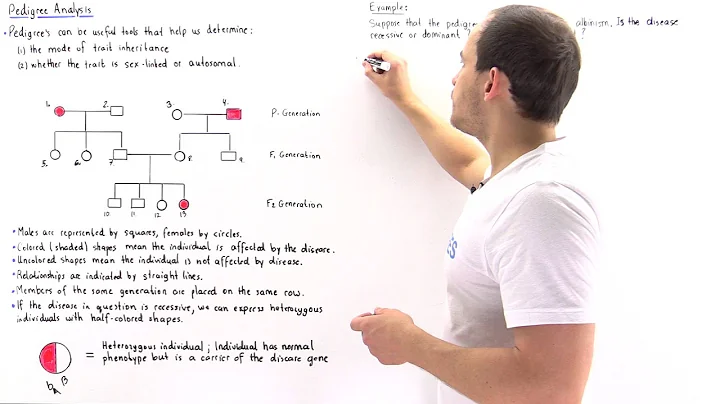 Pedigree Analysis
• Pedigree's can be useful tools that help us determine:
(1) the mode of trait inheritance
(2) whether the trait is sex-linked or autosomal.
1. 2. 3. 4. P. Generation
5. 6. 7. 8. 9. F1 Generation
10 11 12 13 F2 Generation
• Males are represented by squares, females by circles.
• Colored (shaded) shapes mean the individual is affected by the disease.
• Uncolored shapes mean the individual is not affected by disease.
• Relationships are indicated by straight lines.
• Members of the same generation are placed on the same row.
• If the disease in question is recessive, we can express heterozygous
individuals with half-colored shapes.
= Heterozygous individual; Individual has normal
phenotype but is a carrier of the disease gene
b B
Example:
Suppose that the pedigre albinism. Is the disease
recessive or dominant ? ?
ES